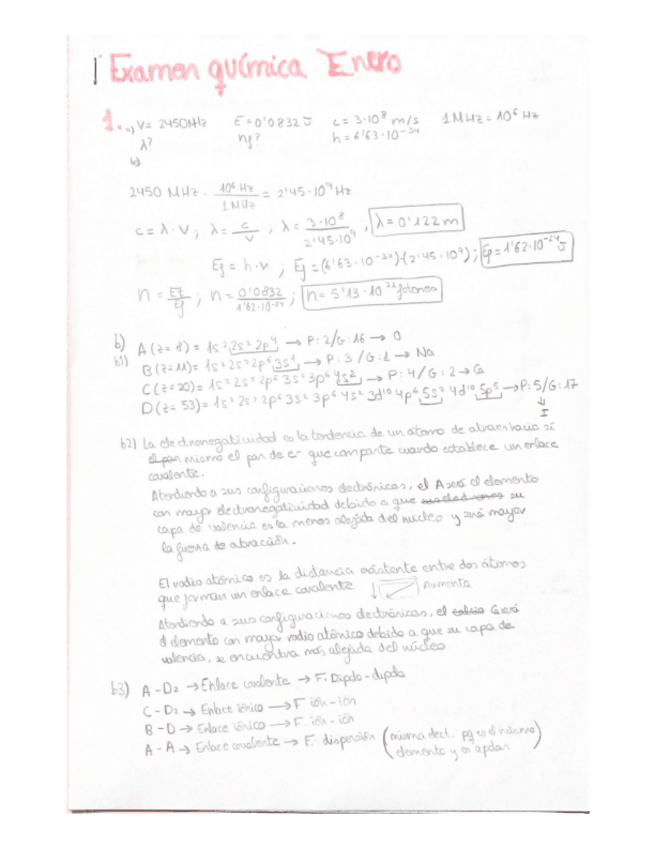 Examen química Enero
1. a) V= 2450MHz E=0'0832J c=3·10⁸ m/s 1MHz=10⁶ Hz
λ? nf? h=6'63·10⁻³⁴
b)
2450 MHz · 10⁶ Hz / 1 MHz = 2'45·10⁹ Hz
c=λ·V ; λ= c/V , λ= 3·10⁸ / 2'45·10⁹ , λ=0'122m
Ef=h·v ; Ef=(6'63·10⁻³⁴)·(2'45·10⁹) ; Ef=1'62·10⁻²⁴J
n= ET/Ef ; n= 0'0832 / 1'62·10⁻²⁴ ; n=5'13·10²² fotones
b) A (z=8)= 1s²2s²2p⁴ → P:2/G:16 → O
b1) B (z=11)= 1s²2s²2p⁶3s¹ → P:3/G:1 → Na
C (z=20)= 1s²2s²2p⁶3s²3p⁶4s² → P:4/G:2 → Ca
D (z=53)= 1s²2s²2p⁶3s²3p⁶4s²3d¹⁰4p⁶5s²4d¹⁰5p⁵ → P:5/G:17
↓
I
b2) La electronegatividad es la tendencia de un átomo de atraer hacia sí
el par mismo el par de e⁻ que comparte cuando establece un enlace
covalente.
Atendiendo a sus configuraciones electrónicas, el A será el elemento
con mayor electronegatividad debido a que su
capa de valencia es la menos alejada del nucleo y será mayor
la fuerza de atracción.
El radio atómico es la distancia existente entre dos átomos
que forman un enlace covalente Aumenta
Atendiendo a sus configuraciones electrónicas, el C será
el elemento con mayor radio atómico debido a que su capa de
valencia, se encuentra más alejada del núcleo
b3) A-D2 → Enlace covalente → F. Dipolo-dipolo
C-D2 → Enlace iónico → F ión-ión
B-D → Enlace iónico → F. ión-ión
A-A → Enlace covalente → F. dispersión (misma elect. pq es el mismo
elemento y es apolar)